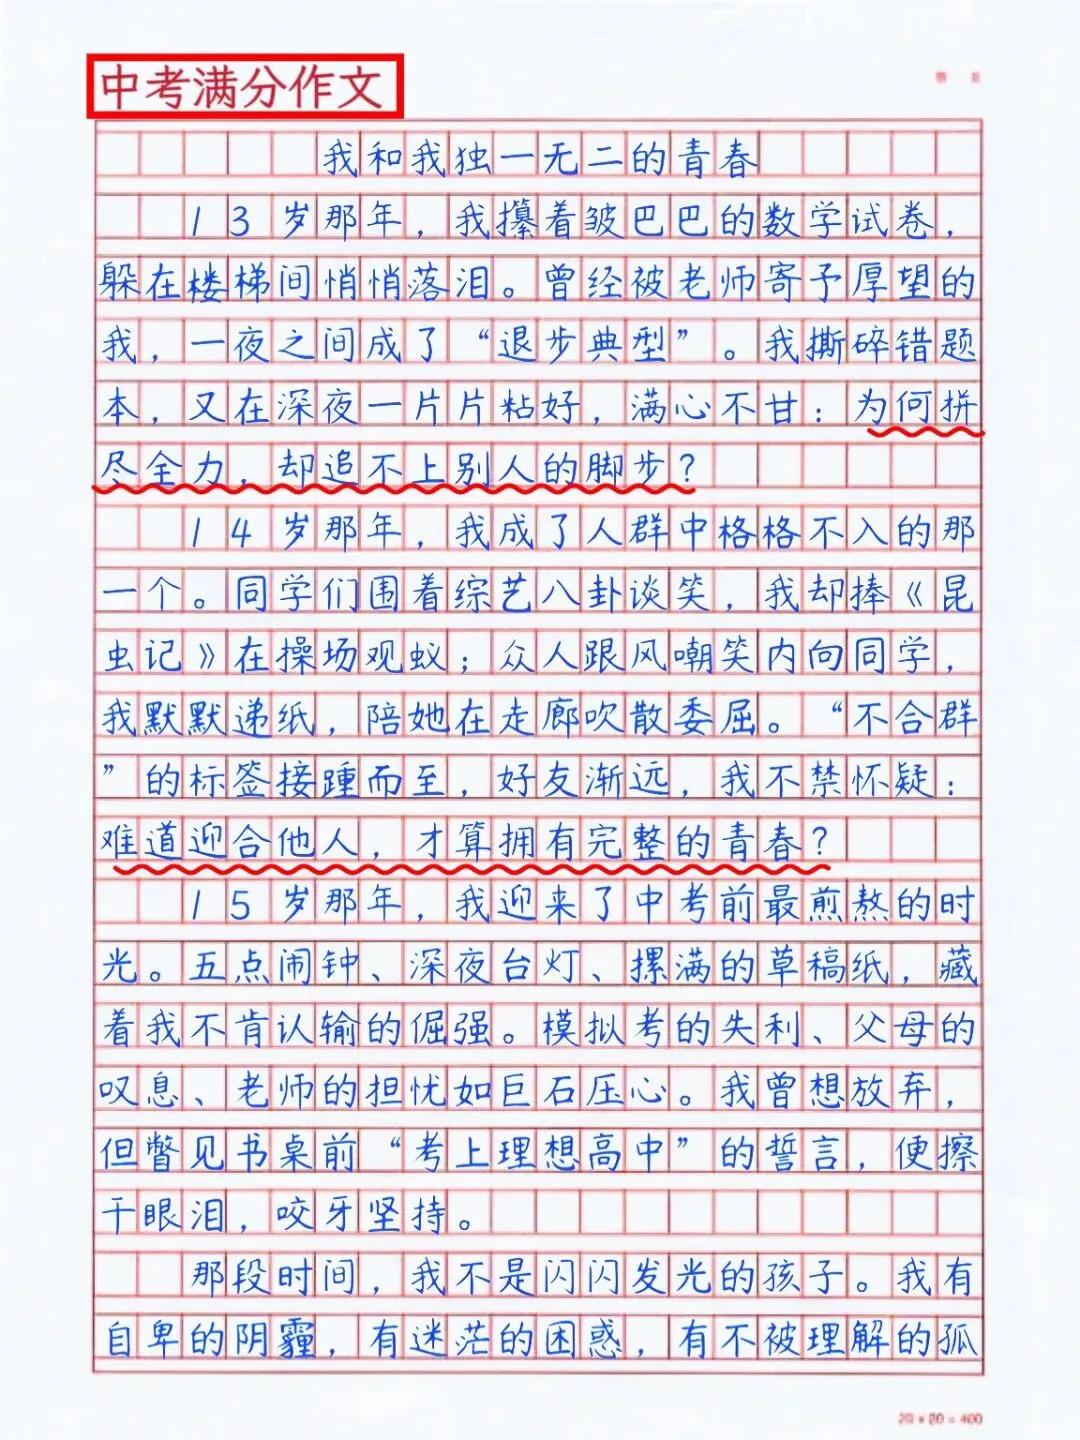 中考满分作文
我和我独一无二的青春
13岁那年，我攥着皱巴巴的数学试卷，
躲在楼梯间悄悄落泪。曾经被老师寄予厚望的
我，一夜之间成了“退步典型”。我撕碎错题
本，又在深夜一片片粘好，满心不甘：为何拼
尽全力，却追不上别人的脚步？
14岁那年，我成了人群中格格不入的那
一个。同学们围着综艺八卦谈笑，我却捧《昆
虫记》在操场观蚁；众人跟风嘲笑内向同学，
我默默递纸，陪她在走廊吹散委屈。“不合群
”的标签接踵而至，好友渐远，我不禁怀疑：
难道迎合他人，才算拥有完整的青春？
15岁那年，我迎来了中考前最煎熬的时
光。五点闹钟、深夜台灯、摞满的草稿纸，藏
着我不肯认输的倔强。模拟考的失利、父母的
叹息、老师的担忧如巨石压心。我曾想放弃，
但瞥见书桌前“考上理想高中”的誓言，便擦
干眼泪，咬牙坚持。
那段时间，我不是闪闪发光的孩子。我有
自卑的阴霾，有迷茫的困惑，有不被理解的孤
20×20=400